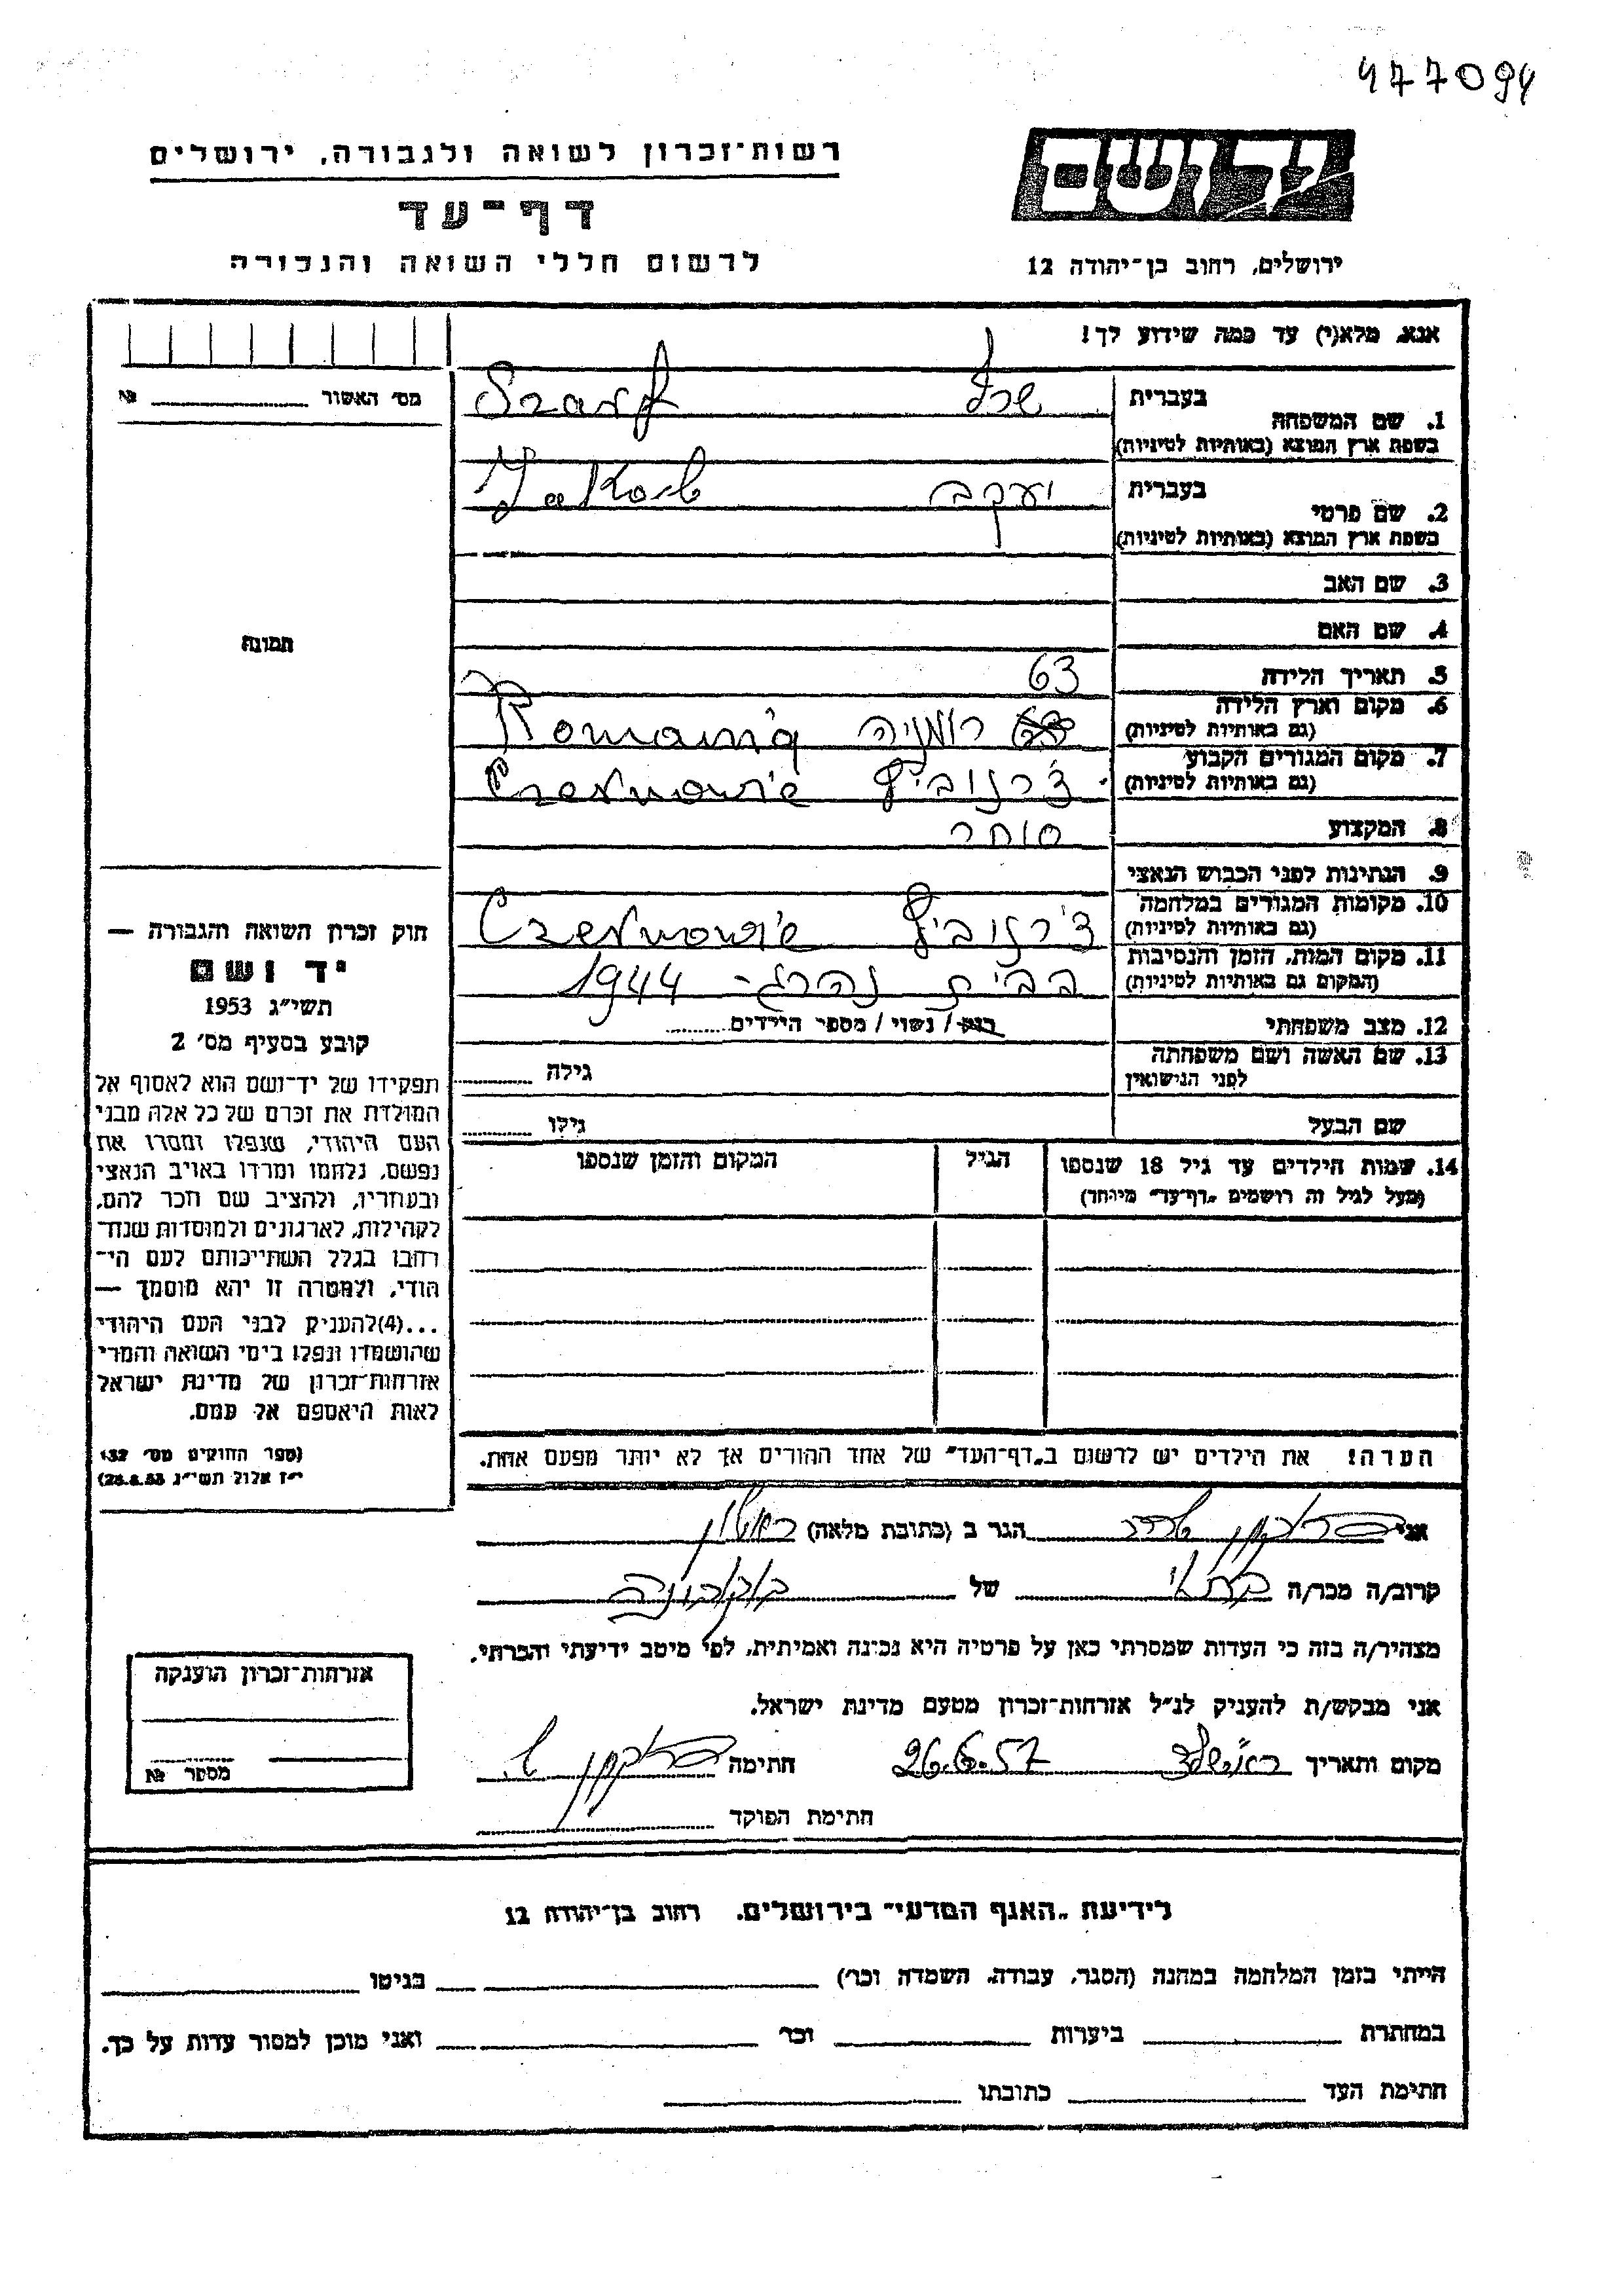 477094
רשות־זכרון לשואה ולגבורה, ירושלים
דף־עד
לרשום חללי השואה והגבורה
יד ושם
ירושלים, רחוב בן־יהודה 12
אנא, מלא(י) עד כמה שידוע לך!
מס׳ האשור № 
1. שם המשפחה בעברית שרף Szarf
בשפת ארץ המוצא (באותיות לטיניות)
2. שם פרטי בעברית יעקב Jakob
בשפת ארץ המוצא (באותיות לטיניות)
3. שם האב
4. שם האם
5. תאריך הלידה 63
6. מקום וארץ הלידה רומניה Romania
(גם באותיות לטיניות)
7. מקום המגורים הקבוע צ׳רנוביץ
(גם באותיות לטיניות)
8. המקצוע סוחר
9. הנתינות לפני הכבוש הנאצי
10. מקומות המגורים במלחמה צ׳רנוביץ
(גם באותיות לטיניות)
11. מקום המות, הזמן והנסיבות בבית נהרג- 1944
(המקום גם באותיות לטיניות)
12. מצב משפחתי רווק / נשוי / מספר הילדים
13. שם האשה ושם משפחתה גילה
לפני הנישואין
שם הבעל גילו
14. שמות הילדים עד גיל 18 שנספו הגיל המקום והזמן שנספו
(מעל לגיל זה רושמים „דף־עד” מיוחד)
הערה! את הילדים יש לרשום ב„דף־העד” של אחד ההורים אך לא יותר מפעם אחת.
תמונה
חוק זכרון השואה והגבורה —
יד ושם
תשי״ג 1953
קובע בסעיף מס׳ 2
תפקידו של יד־ושם הוא לאסוף אל
המולדת את זכרם של כל אלה מבני
העם היהודי, שנפלו ומסרו את
נפשם, נלחמו ומרדו באויב הנאצי
ובעוזריו, ולהציב שם וזכר להם,
לקהילות, לארגונים ולמוסדות שנח־
רבו בגלל השתייכותם לעם הי־
הודי, ולמטרה זו יהא מוסמך —
...(4)להעניק לבני העם היהודי
שהושמדו ונפלו בימי השואה והמרי
אזרחות־זכרון של מדינת ישראל
לאות היאספם אל עמם.
(ספר החוקים מס׳ 132
י״ז אלול תשי״ג 28.8.53)
אני הגר ב (כתובת מלאה)
קרוב/ה מכר/ה של
מצהיר/ה בזה כי העדות שמסרתי כאן על פרטיה היא נכונה ואמיתית, לפי מיטב ידיעתי והכרתי.
אני מבקש/ת להעניק לנ״ל אזרחות־זכרון מטעם מדינת ישראל.
מקום ותאריך 26.6.57 חתימה
חתימת הפוקד
אזרחות־זכרון הוענקה
מספר №
לידיעת „האגף המדעי” בירושלים, רחוב בן־יהודה 12
הייתי בזמן המלחמה במחנה (הסגר, עבודה, השמדה וכו׳) בגיטו
במחתרת ביערות וכו׳ ואני מוכן למסור עדות על כך.
חתימת העד כתובתו